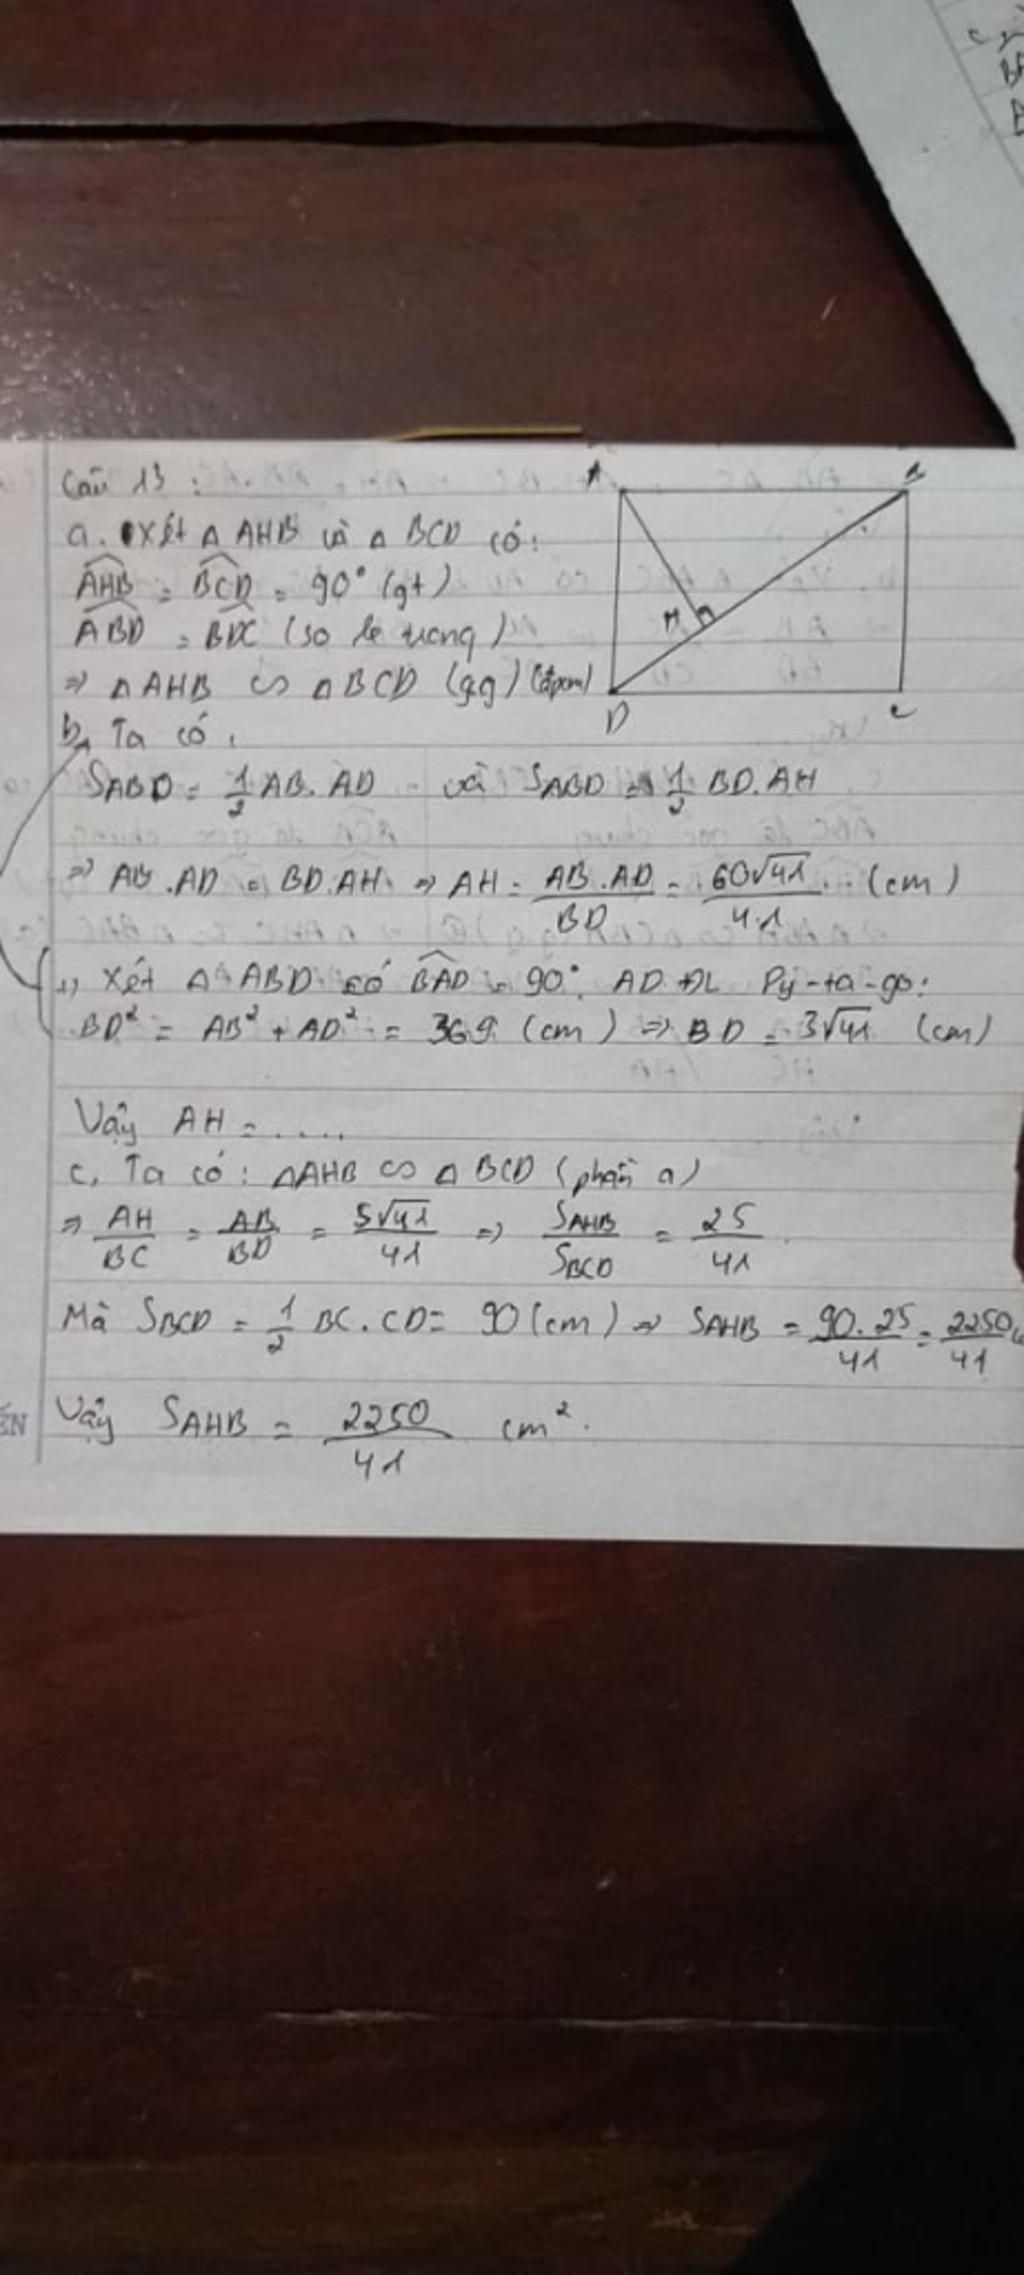 Câu 13:
a. Xét △ AHB và △ BCD có:
AHB = BCD = 90° (gt)
ABD = BDC (so le trong)
=> △AHB ∽ △BCD (g.g) (đpcm)
b, Ta có:
SABD = 1/2 AB. AD và SABD = 1/2 BD. AH
=> AB.AD = BD.AH => AH = AB.AD/BD = 60√41/41 (cm)
Xét △ ABD có BAD = 90°. AD ĐL Py-ta-go:
BD² = AB² + AD² = 369 (cm) => BD = 3√41 (cm)
Vậy AH = .....
c, Ta có: △AHB ∽ △BCD (phần a)
=> AH/BC = AB/BD = 5√41/41 => SAHB/SBCD = 25/41.
Mà SBCD = 1/2 BC.CD = 90 (cm) => SAHB = 90.25/41 = 2250/41
Vậy SAHB = 2250/41 cm².
A B
H
D C